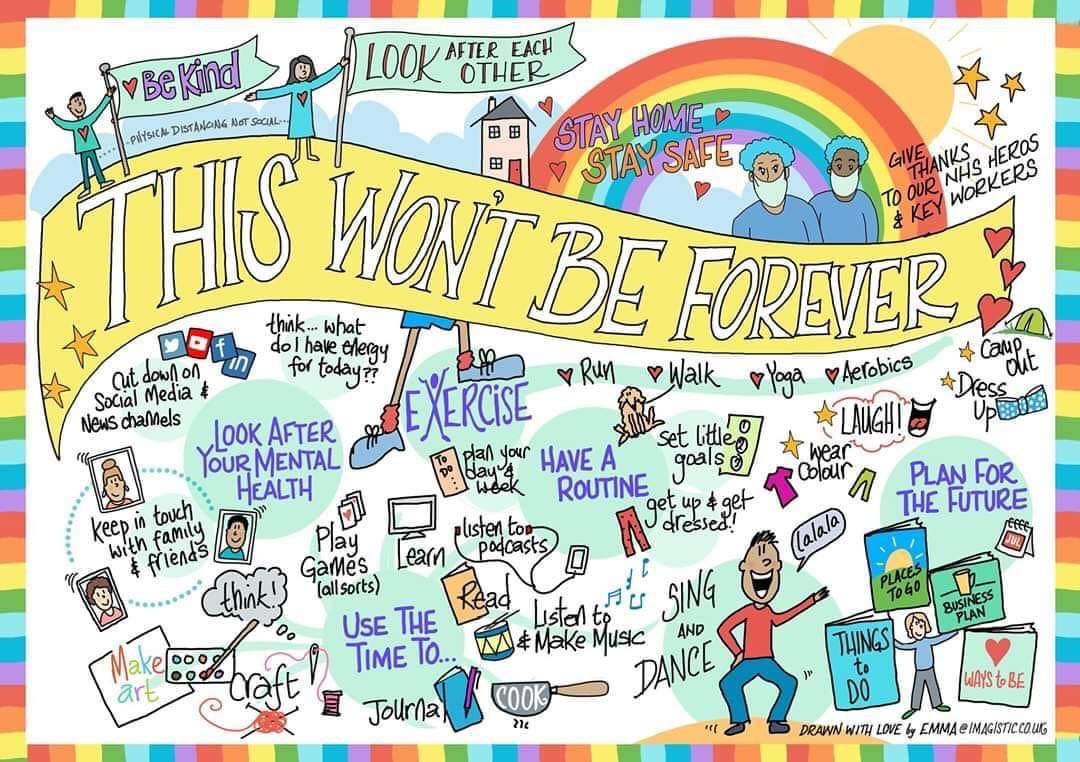 Be Kind
LOOK AFTER EACH
OTHER
..PHYSICAL DISTANCING NOT SOCIAL...
STAY HOME
STAY SAFE
GIVE THANKS
TO OUR NHS HEROS
& KEY WORKERS
THIS WON'T BE FOREVER
Cut down on
Social Media &
News channels
f
in
think... what
do I have energy
for today??
LOOK AFTER
YOUR MENTAL
HEALTH
keep in touch
with family
& friends
think!
EXERCISE
Run
Walk
Yoga
Aerobics
TO
DO
plan your
day &
week
HAVE A
ROUTINE
set little
goals
1
2
3
get up & get
dressed!
LAUGH!
wear
colour
Camp
Out
Dress
Up
PLAN FOR
THE FUTURE
JUL
PLACES
TO GO
BUSINESS
PLAN
THINGS
to
DO
WAYS to BE
Play
Games
(all sorts)
Learn
listen to
podcasts
Read
Listen to
& Make Music
USE THE
TIME TO...
Make
art
Craft
Journal
COOK
SING
AND
DANCE
lalala
DRAWN WITH LOVE by EMMA @ IMAGISTIC.CO.UK